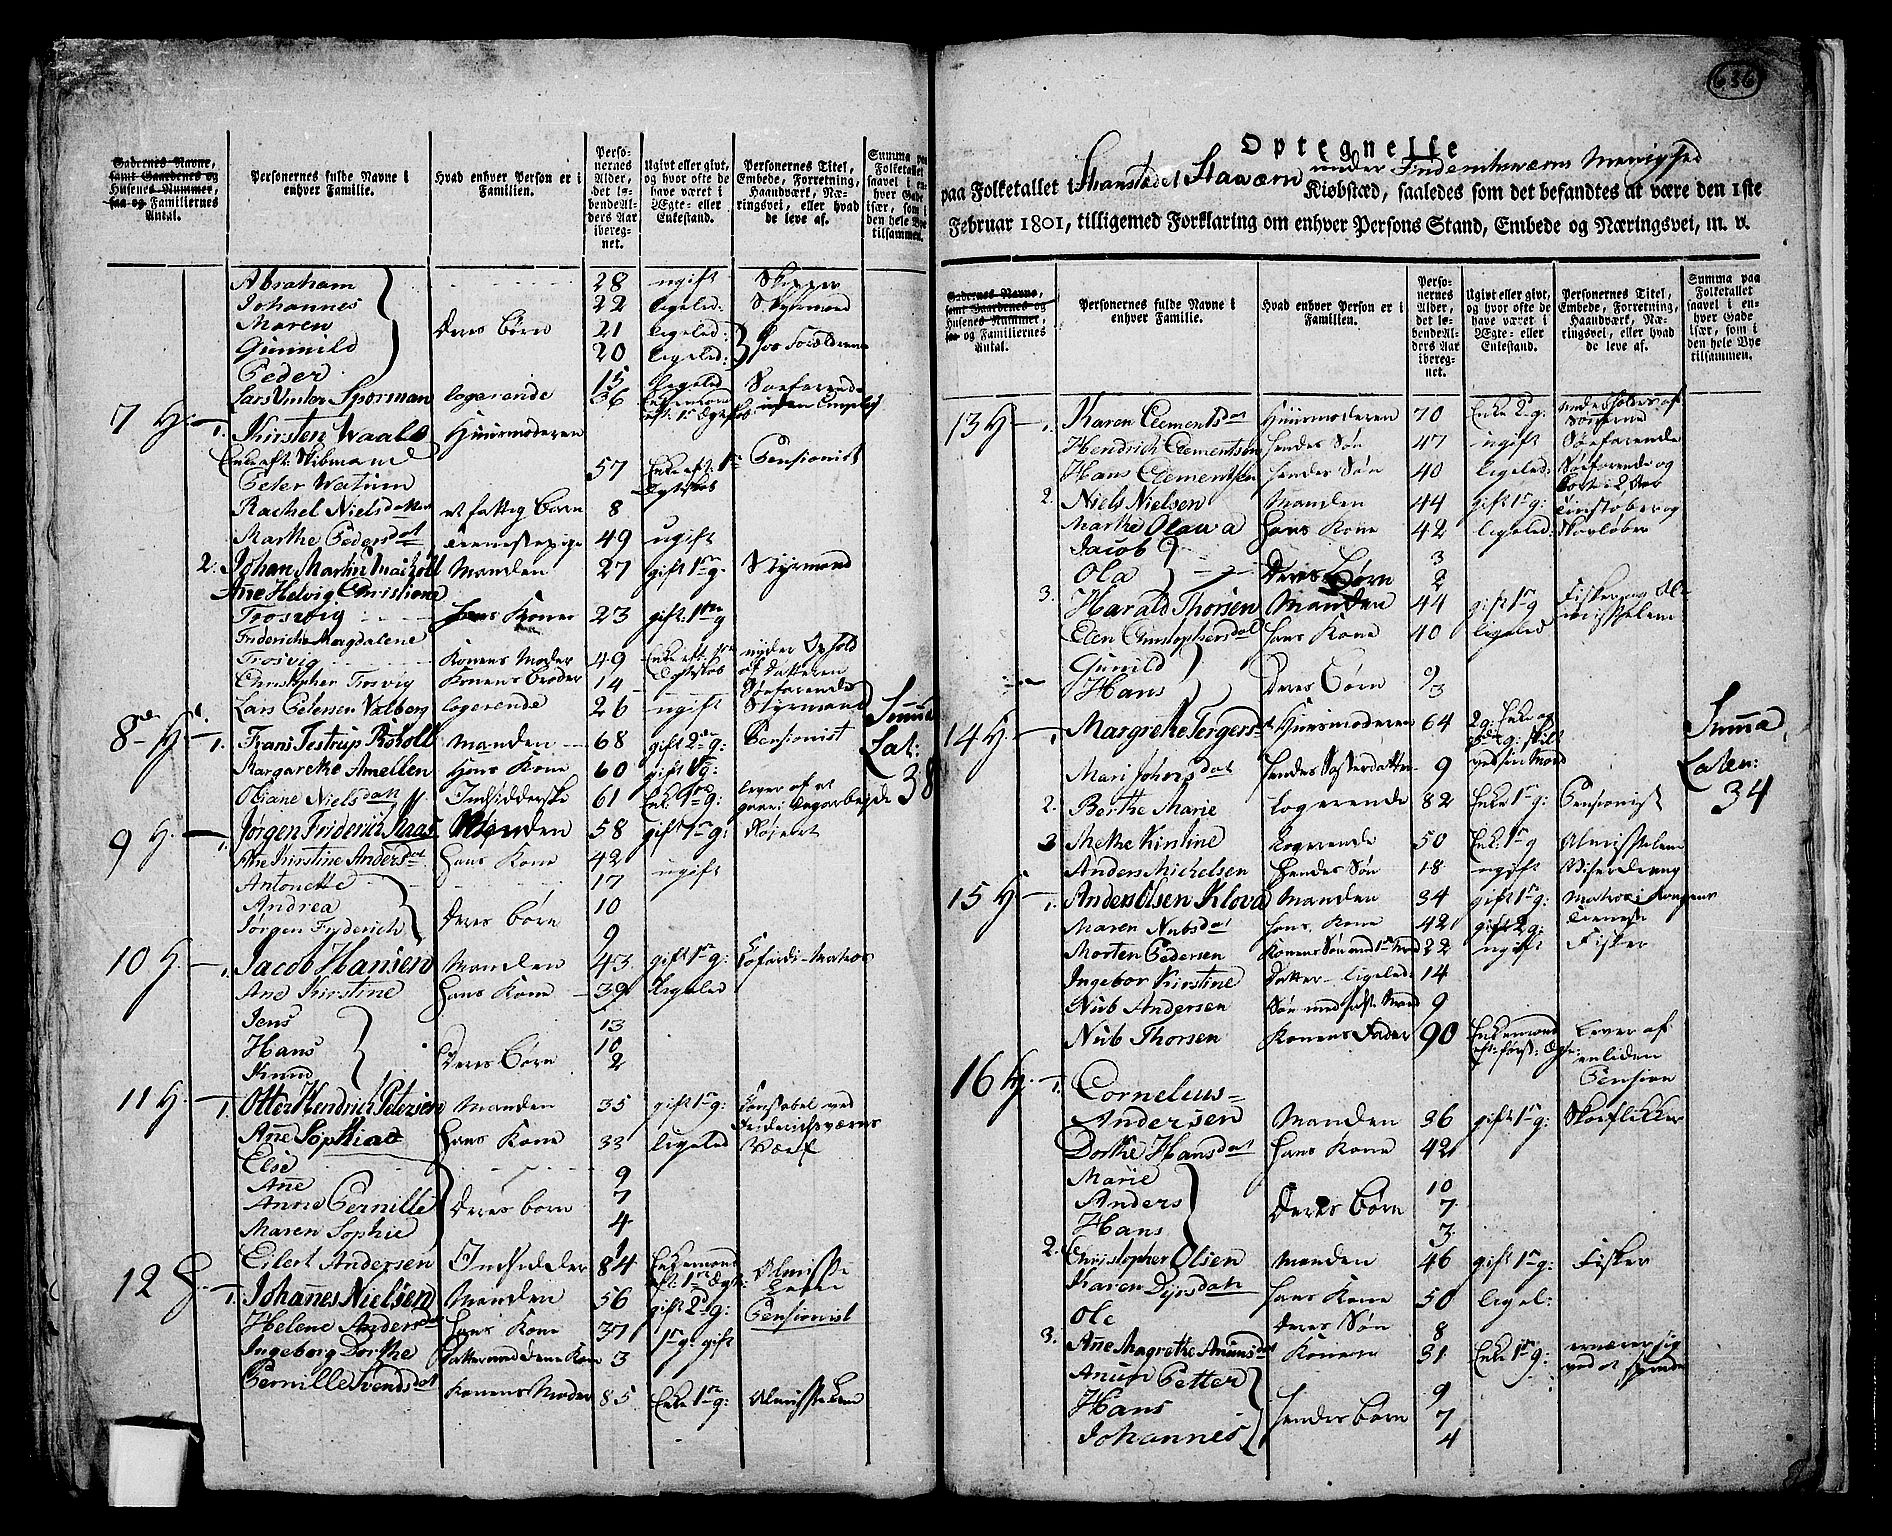 636
Gadernes Navne, samt Gaardenes og Husenes Nummer, saa og Familiernes Antal.
Personernes fulde Navne i enhver Familie.
Hvad enhver Person er i Familien.
Personernes Alder, det løbende Alders Aar iberegnet.
Ugivt eller givt, og hvor ofte de have været i Ægte- eller Enkestand.
Personernes Titel, Embede, Forretning, Haandværk, Næringsvei, eller hvad de leve af.
Summa paa Folketallet saavel i enhver Gade især, som i den hele Bye tilsammen.
Abraham 28 ugift
Johannes 22 ligeled:
Maren deres Børn 21 ligeled:
Gunnild 20 ligeled:
Peder 15 Ligeled
Lars Vinter Sporman logerende 36
7 H. 1. Kirsten Waale Huusmoderen
57 Enke eft: 1ste Pensionist
Rachel Nielsdatter et fattig Børn 8
Marthe Pedersdat tienestepige 49 ugift
2. Johan Martin Manden 27 gift 1e g. Styrmand
Ane Helvig Christiane
Trosvig hans Kone 23 gift 1ste g
Friderich Magdalene
Trosvig Konens Moder 49 nyder Ophold
Christopher Trosvig Konens Broder 14 Søefarende
Lars Petersen Valberg logerende 26 ugift Styrmand
8de H. 1. Frans Testrup Roholt Manden 68 gift 2den g: Pensionist
Margarethe Amellen Hans Kone 60 gift 1ste g:
Oliane Nielsdatt Indsidderske 61 Enke 1ste g: lever af at
Summa
Lat:
38
9 H. 1. Jørgen Friderich Manden 58 gift 1ste g:
Ane Kirstine Andersdat hans Kone 42
Antonette 17 ugift
Andrea Deres børn 10
Jørgen Fryderich 9
10 H. 1. Jacob Hansen Manden 43 gift 1e g: Cofardi-Matros
Ane Kirstine hans Kone 39 ligeled
Jens 13
Hans Deres Børn 10
Knud 2
11 H. 1. Otter Hendrich Petersen Manden 35 gift 1e g: Constabel ved
Ane Sophia hans Kone 33 ligeled Friderichsværns Værf
Else 9
Ane 7
Anne Pernille Deres børn 4
Maren Sophie 1
Eilert Andersen Indsidder 84 Enkemand Almisse
12 H. 1. Johannes Nielsen Manden 56 gift 2d g: Pensionist
Helene Andersdat hans Kone 37 1e g: gift
Ingeborg Dorthe 3
Pernille Svendsdat Konens Moder 85 Enke 1e g: Almisselem
Optegnelse
paa Folketallet i Stranstedet Staværn under Friderichsværns Menighed
Kiøbstæd, saaledes som det befandtes at være den 1ste
Februar 1801, tilligemed Forklaring om enhver Persons Stand, Embede og Næringsvei, m. v.
Gadernes Navne, samt Gaardenes og Husenes Nummer, saa og Familiernes Antal.
Personernes fulde Navne i enhver Familie.
Hvad enhver Person er i Familien.
Personernes Alder, det løbende Alders Aar iberegnet.
Ugivt eller givt, og hvor ofte de have været i Ægte- eller Enkestand.
Personernes Titel, Embede, Forretning, Haandværk, Næringsvei, eller hvad de leve af.
Summa paa Folketallet saavel i enhver Gade især, som i den hele Bye tilsammen.
13 H 1. Karen Clementsdat Huusmoderen 70 Enke 2 g: underholdes af Sønnerne
Hendrich Clementsen hendes Søn 47 ugift Søefarende
Hans Clementsen hendes Søn 40 ligeled: Søefarende og
2. Niels Nielsen Manden 44 gift 1e g:
Marthe Olava hans Kone 42 ligeled:
Jacob 3
Ola Deres Børn 2
3. Harald Thorsen Manden 44 gift 1e g Fisker og Almisselem
Elen Christophersdat hans Kone 40 ligeled
Gunild 9
Hans Deres Børn 3
14 H 1. Margrethe Huusmoderen 64 2 g: Enke og
Mari Johnsdat hendes Søsterdatter 9
2. Berthe Marie Logerende 82 Enke 1e g: Pensionist
3 Mette Kirstine Logerende 50 Enke 1e g Almisselem
Anders Michelsen Hendes Søn 18 ugift Viserdreng
Summa
Laten:
34
15 H 1. Anders Olsen Klova Manden 34 gift 1e g: Matros i Kongens Tieneste
Maren Nubsdat hans Kone 42 gift 2 g:
Morten Pedersen 22 ugift Fisker
Ingebor Kirstine Datter ligeled: 14
Nub Andersen Søn med sidste Mand 9
Nub Thorsen Konens Fader 90 Enkemand Lever af en liden Pension
16 H. 1. Cornelius
Andersen Manden 36 gift 1e g: Skoeflikker
Dorthe Hansdat hans Kone 42
Marie 10
Anders Deres Børn 7
Hans 3
2. Christopher Olsen Manden 46 gift 1e g: Fisker
Karen hans Kone 50 ligel:
Ole Deres Søn 8
3. Ane Magrethe Konen 31 Enke 1e g: ernærer sig ved at spinde
Petter 9
Hans hendes børn 7
Johannes 4